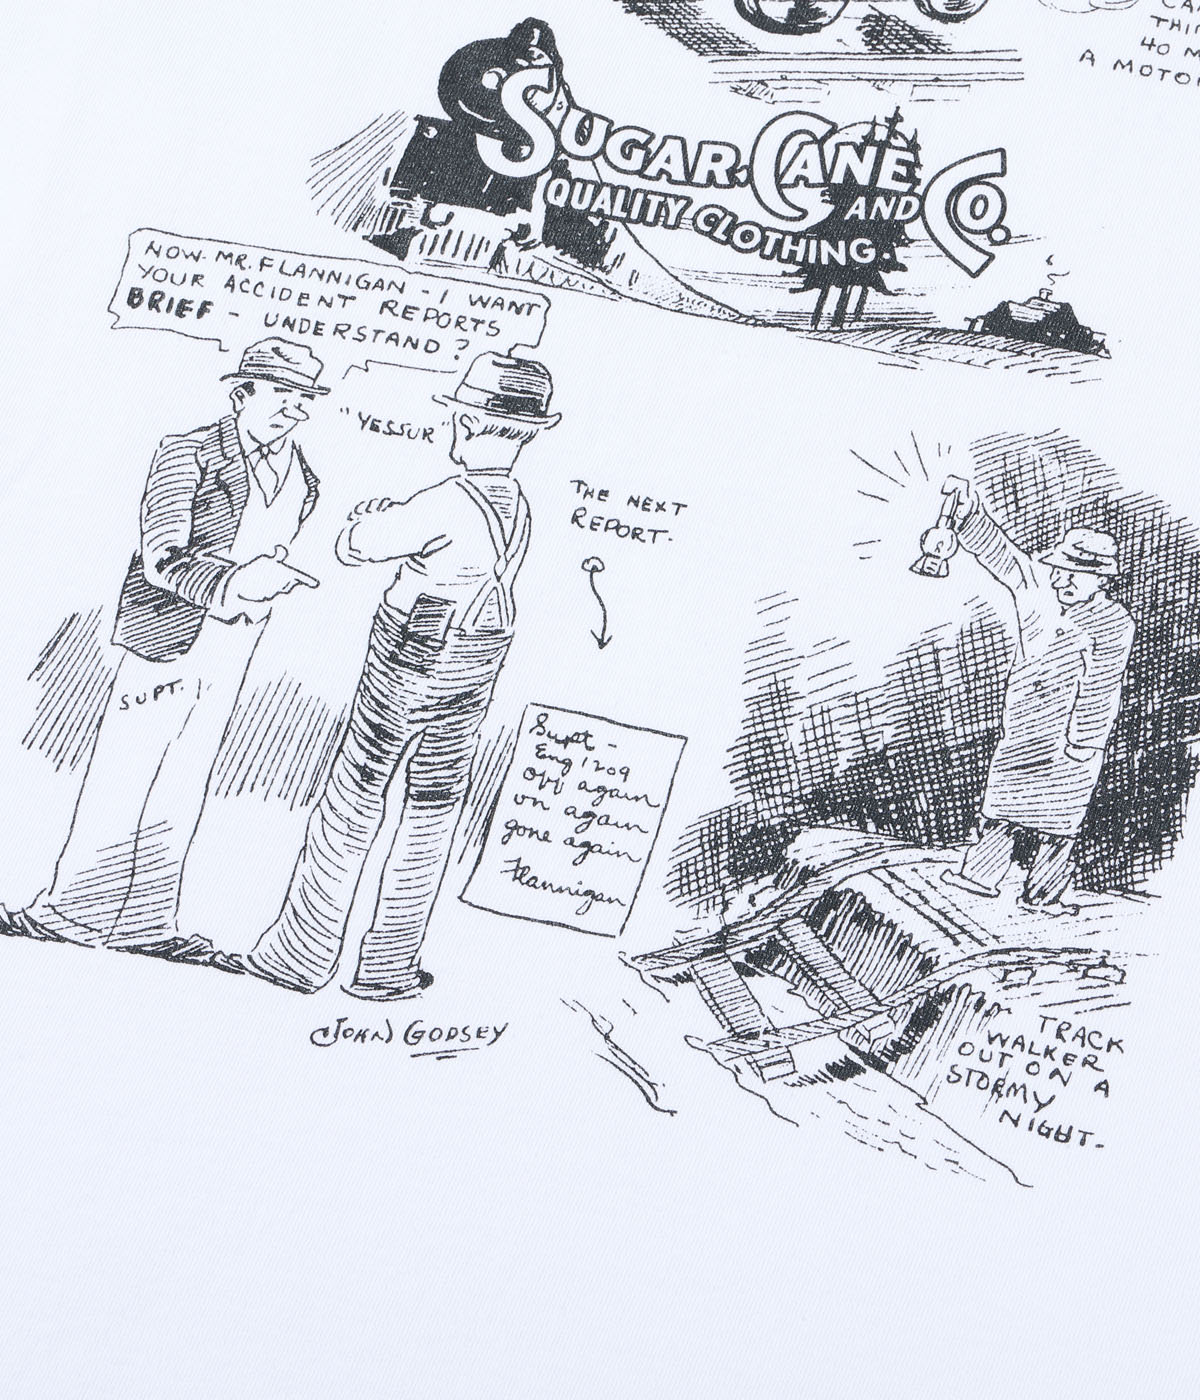 THI
40 M
A MOTO
SUGAR CANE
AND CO.
QUALITY CLOTHING.
NOW- MR. FLANNIGAN - I WANT
YOUR ACCIDENT REPORTS
BRIEF - UNDERSTAND?
"YESSUR"
THE NEXT
REPORT.
SUPT.
Supt -
Eng 1209
off again
on again
gone again
Flannigan
JOHN GODSEY
TRACK
WALKER
OUT ON A
STORMY
NIGHT.